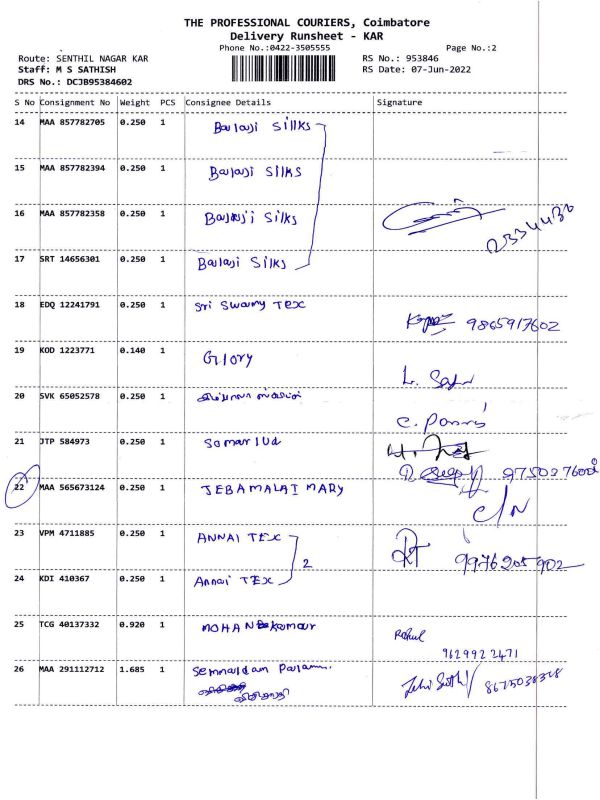 THE PROFESSIONAL COURIERS, Coimbatore
Delivery Runsheet - KAR
Phone No.:0422-3505555
Page No.:2
Route: SENTHIL NAGAR KAR
RS No.: 953846
Staff: M S SATHISH
RS Date: 07-Jun-2022
DRS No.: DCJB95384602
S No Consignment No Weight PCS Consignee Details Signature
14 MAA 857782705 0.250 1 Balaji Sillks
15 MAA 857782394 0.250 1 Balaji Silks
16 MAA 857782358 0.250 1 Balaji Silks
17 SRT 14656301 0.250 1 Balaji Silks
18 EDQ 12241791 0.250 1 Sri Swamy TEX 9865917602
19 KOD 1223771 0.140 1 Glory
20 SVK 65052578 0.250 1
21 JTP 584973 0.250 1
22 MAA 565673124 0.250 1 JEBAMALAI MARY C/N
23 VPM 4711885 0.250 1 ANNAI TEX 9976205902
2
24 KDI 410367 0.250 1 Annai TEX
25 TCG 40137332 0.920 1 MOHAN Kumar Rahul
9629922471
26 MAA 291112712 1.685 1